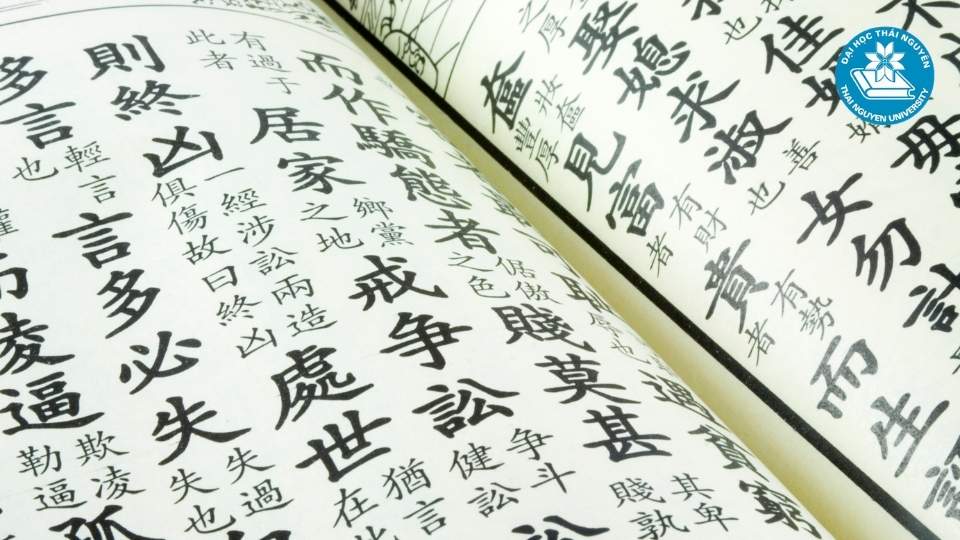 佳婿毋
娶媳求淑善也女勿計
之厚
奩妝奩豐厚見富有財者貴有勢者而生諂
遇貧窮
而作驕態者倨傲之色賤莫甚其卑賤孰
有過于此者居家鄉黨之地戒争訟争斗健訟訟
則終凶一經涉訟兩造俱傷故曰終凶處世猶言在
多言輕言也言多必失失過失也
凌逼欺凌勒逼孤
ĐẠI HỌC THÁI NGUYÊN
THAI NGUYEN UNIVERSITY